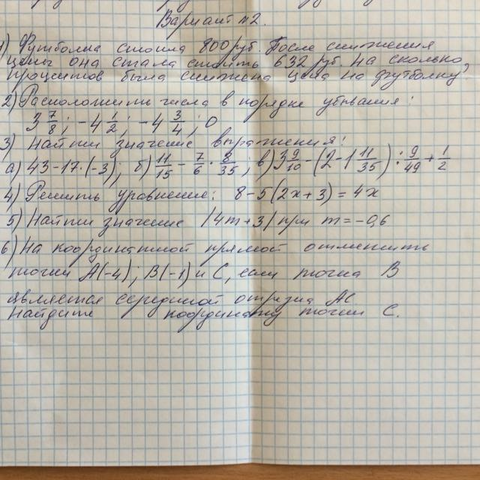 Вариант №2.
1) Футболка стоила 800 руб. После снижения
цены она стала стоить 632 руб. На сколько
процентов была снижена цена на футболку
2) Расположить числа в порядке убывания:
3 7/8; -4 1/2; -4 3/4; 0
3) Найти значение выражения:
а) 43-17·(-3); б) 11/15 - 7/6 · 8/35; в) 3 9/10 - (2-1 11/35) : 9/49 + 1/2
4) Решить уравнение: 8-5(2x+3)=4x
5) Найти значение |4m+3| при m=-0,6
6) На координатной прямой отметить
точки A(-4); B(-1) и C, если точка B
является серединой отрезка AC
Найдите координату точки C.